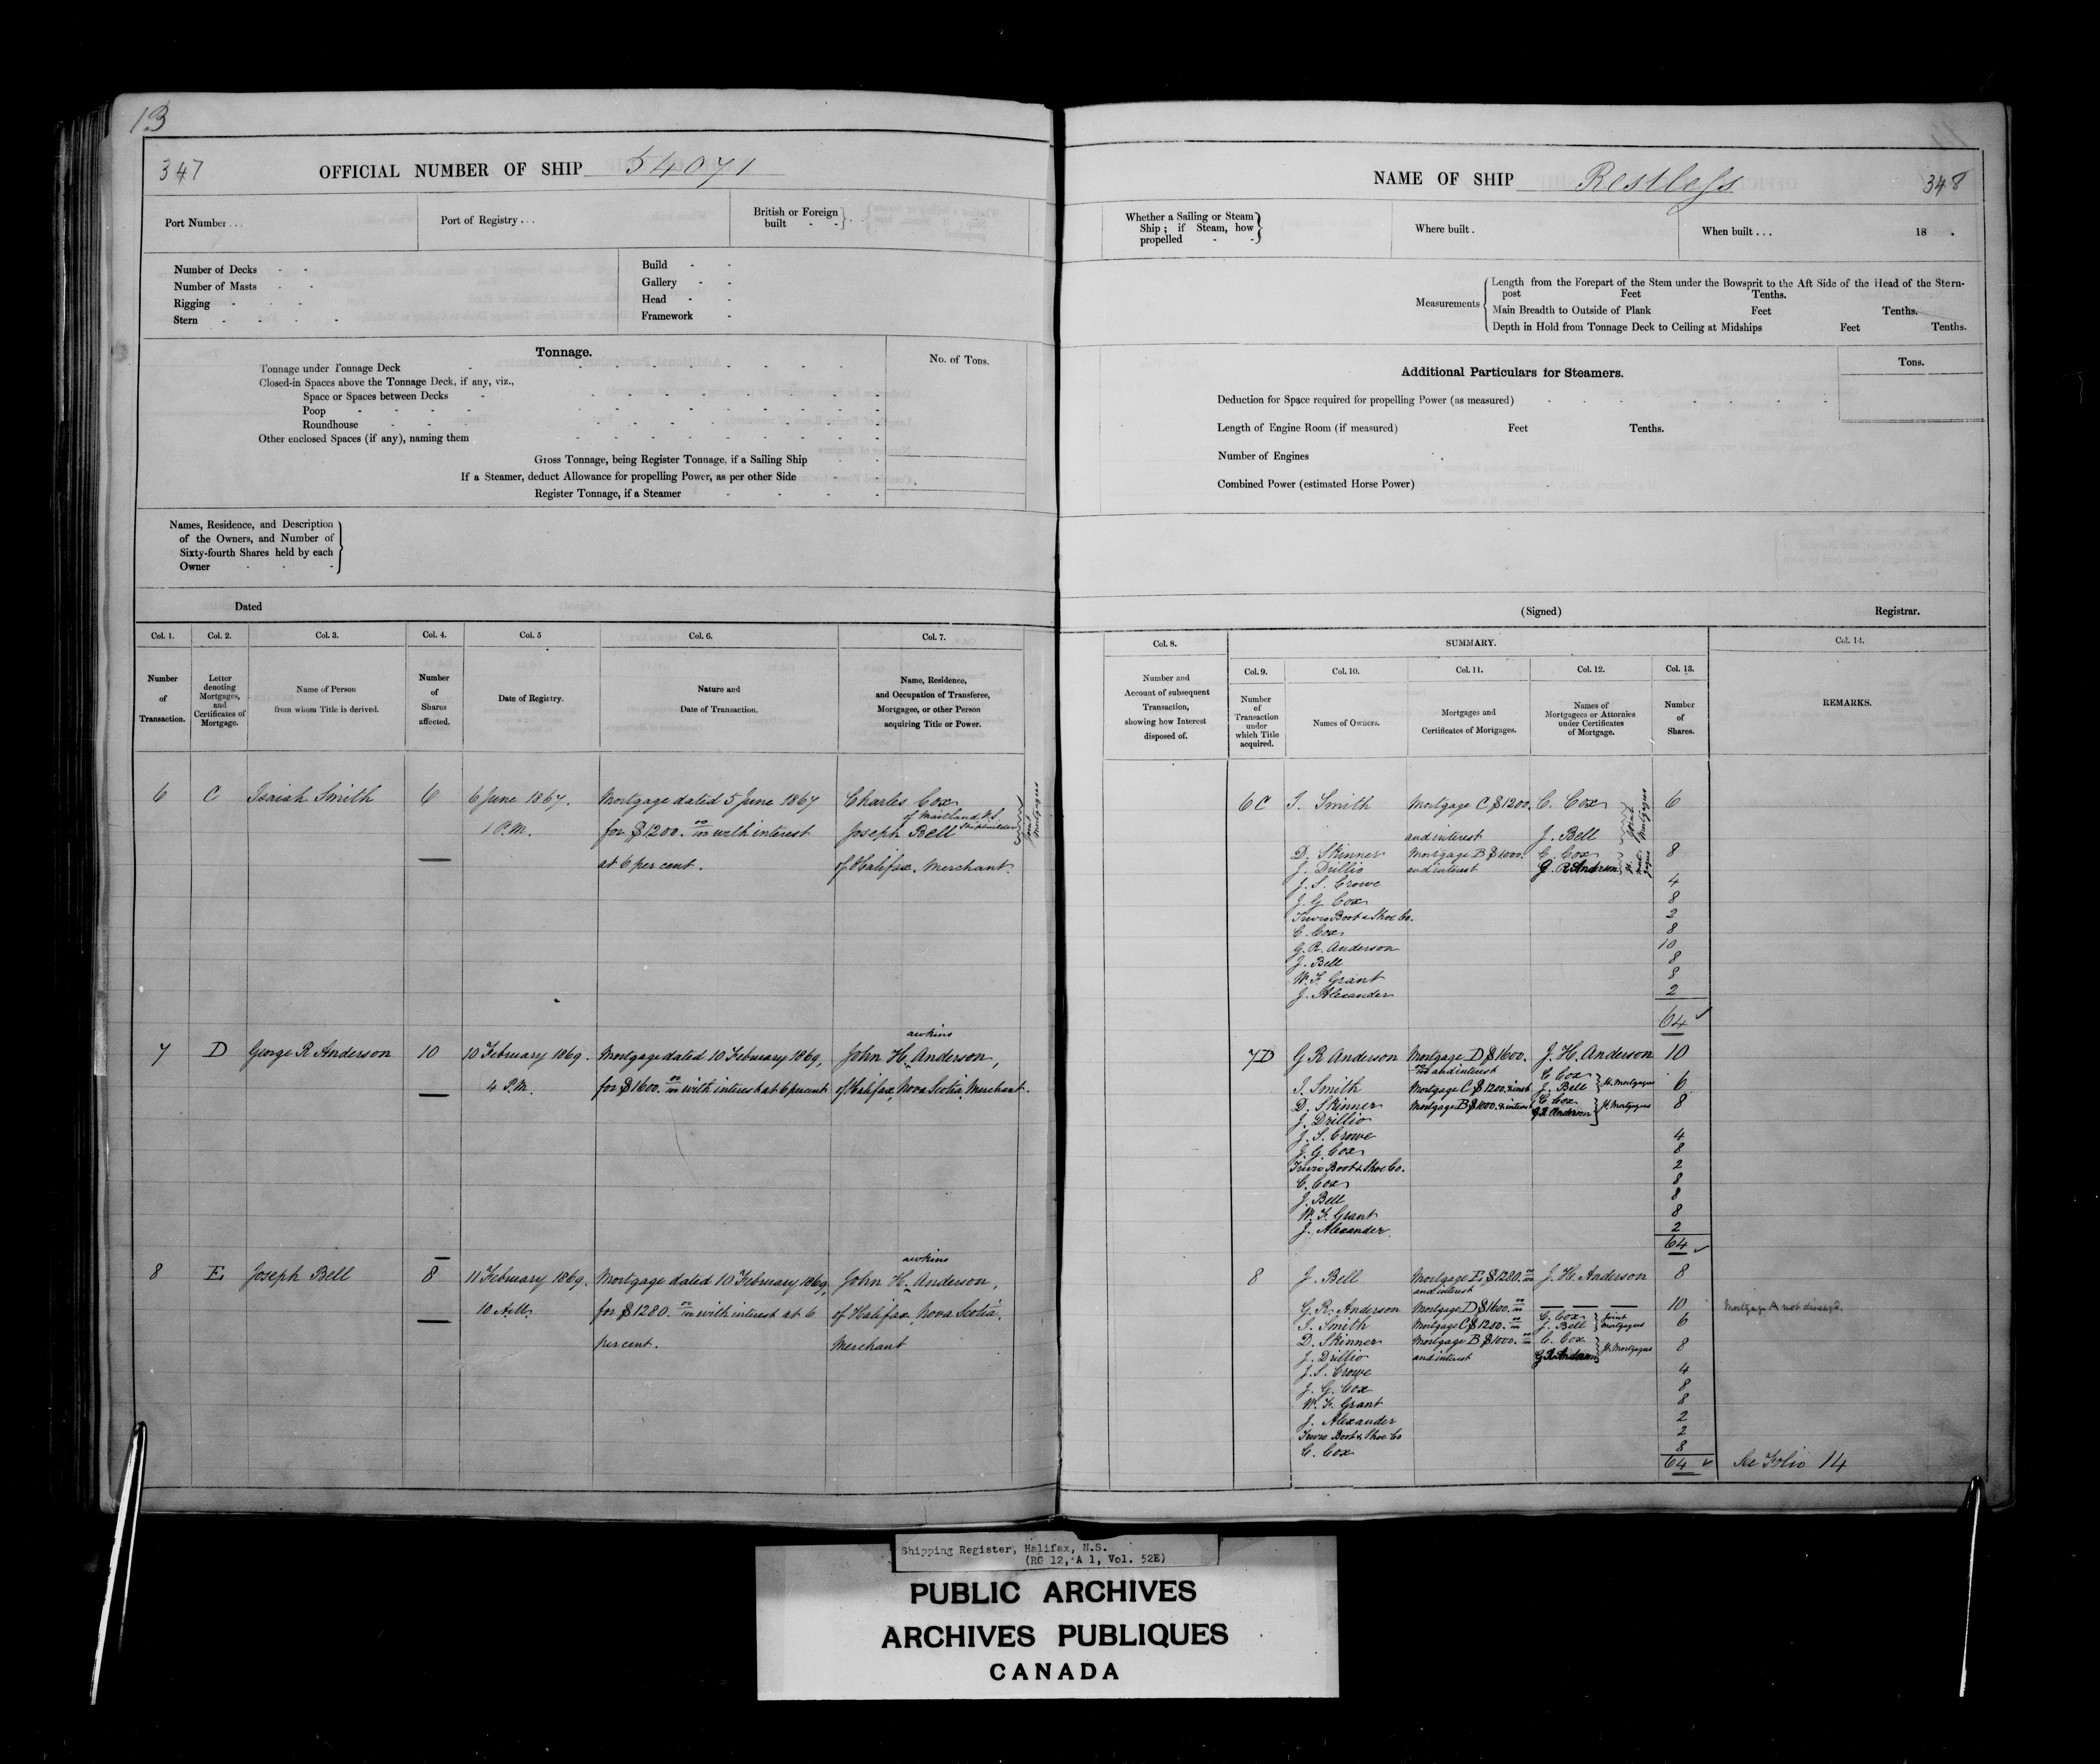 13
347
OFFICIAL NUMBER OF SHIP 54071
Port Number . . .
Port of Registry . . .
British or Foreign built - -
Number of Decks - -
Number of Masts - -
Rigging - - -
Stern - - - -
Build - -
Gallery - -
Head - -
Framework -
Tonnage.
No. of Tons.
Tonnage under Tonnage Deck
Closed-in Spaces above the Tonnage Deck, if any, viz.,
Space or Spaces between Decks
Poop
Roundhouse
Other enclosed Spaces (if any), naming them
Gross Tonnage, being Register Tonnage, if a Sailing Ship
If a Steamer, deduct Allowance for propelling Power, as per other Side
Register Tonnage, if a Steamer
Names, Residence, and Description
of the Owners, and Number of
Sixty-fourth Shares held by each
Owner
Dated
Col. 1. Col. 2. Col. 3. Col. 4. Col. 5 Col. 6. Col. 7.
Number of Transaction.
Letter denoting Mortgages, and Certificates of Mortgage.
Name of Person from whom Title is derived.
Number of Shares affected.
Date of Registry.
Nature and Date of Transaction.
Name, Residence, and Occupation of Transferee, Mortgagee, or other Person acquiring Title or Power.
6 C Isaiah Smith 6 6 June 1867. Mortgage dated 5 June 1867 Charles Cox
of Maitland, N.S. Shipbuilder
1 P.M. for $1200. 00/100 with interest Joseph Bell
at 6 per cent. of Halifax, Merchant.
Joint Mortgagees
awkins
7 D George R Anderson 10 10 February 1869. Mortgage dated 10 February 1869, John H. Anderson,
4 P.M. for $1600. 00/100 with interest at 6 percent of Halifax, Nova Scotia, Merchant.
awkins
8 E Joseph Bell 8 11 February 1869. Mortgage dated 10 February 1869, John H. Anderson,
10 A.M. for $1280. 00/100 with interest at 6 of Halifax, Nova Scotia.
per cent. Merchant
NAME OF SHIP Restless
348
Whether a Sailing or Steam
Ship ; if Steam, how
propelled - -
Where built .
When built . . . 18 .
Measurements
Length from the Forepart of the Stem under the Bowsprit to the Aft Side of the Head of the Stern-
post Feet Tenths.
Main Breadth to Outside of Plank Feet Tenths.
Depth in Hold from Tonnage Deck to Ceiling at Midships Feet Tenths.
Additional Particulars for Steamers.
Tons.
Deduction for Space required for propelling Power (as measured)
Length of Engine Room (if measured) Feet Tenths.
Number of Engines
Combined Power (estimated Horse Power)
(Signed) Registrar.
Col. 8. SUMMARY. Col. 14.
Col. 9. Col. 10. Col. 11. Col. 12. Col. 13.
Number and Account of subsequent Transaction, showing how Interest disposed of.
Number of Transaction under which Title acquired.
Names of Owners.
Mortgages and Certificates of Mortgages.
Names of Mortgagees or Attornies under Certificates of Mortgage.
Number of Shares.
REMARKS.
6 C I. Smith Mortgage C $1200. C. Cox 6
and interest J. Bell Joint Mortgagees
D. Skinner Mortgage B $1000. C. Cox 8
J. Drillio and interest G. R Anderson Jt. Mortgagees
J. S. Crowe 4
J. G. Cox 8
Truro Boot & Shoe Co. 2
C. Cox 8
G. R. Anderson 10
J. Bell 8
W. F. Grant 8
J. Alexander 2
64 ✓
7D G R Anderson Mortgage D $1600. J. H. Anderson 10
00/100 and interest C. Cox
I. Smith Mortgage C $1200. & inst J. Bell Jt. Mortgagees 6
D. Skinner Mortgage B $1000. & interest C. Cox Jt. Mortgagees 8
J. Drillio G R Anderson
J. S. Crowe 4
J. G. Cox 8
Truro Boot & Shoe Co. 2
C. Cox 8
J. Bell 8
W. F. Grant 8
J. Alexander 2
64 ✓
8 J. Bell Mortgage E $1280. 00/100 J. H. Anderson 8
and interest
G. R. Anderson Mortgage D $1600. 00/100 — — — 10 Mortgage A not discegd.
I. Smith Mortgage C $1200. 00/100 C. Cox J. Bell Joint Mortgagees 6
D. Skinner Mortgage B $1000. 00/100 C. Cox Jt. Mortgagees 8
J. Drillio and interest G R Anderson
J. S. Crowe 4
J. G. Cox 8
W. F. Grant 8
J. Alexander 2
Truro Boot & Shoe Co 2
C. Cox 8
64 ✓ See Folio 14
Shipping Register, Halifax, N.S.
(RG 12, A 1, Vol. 52E)
PUBLIC ARCHIVES
ARCHIVES PUBLIQUES
CANADA